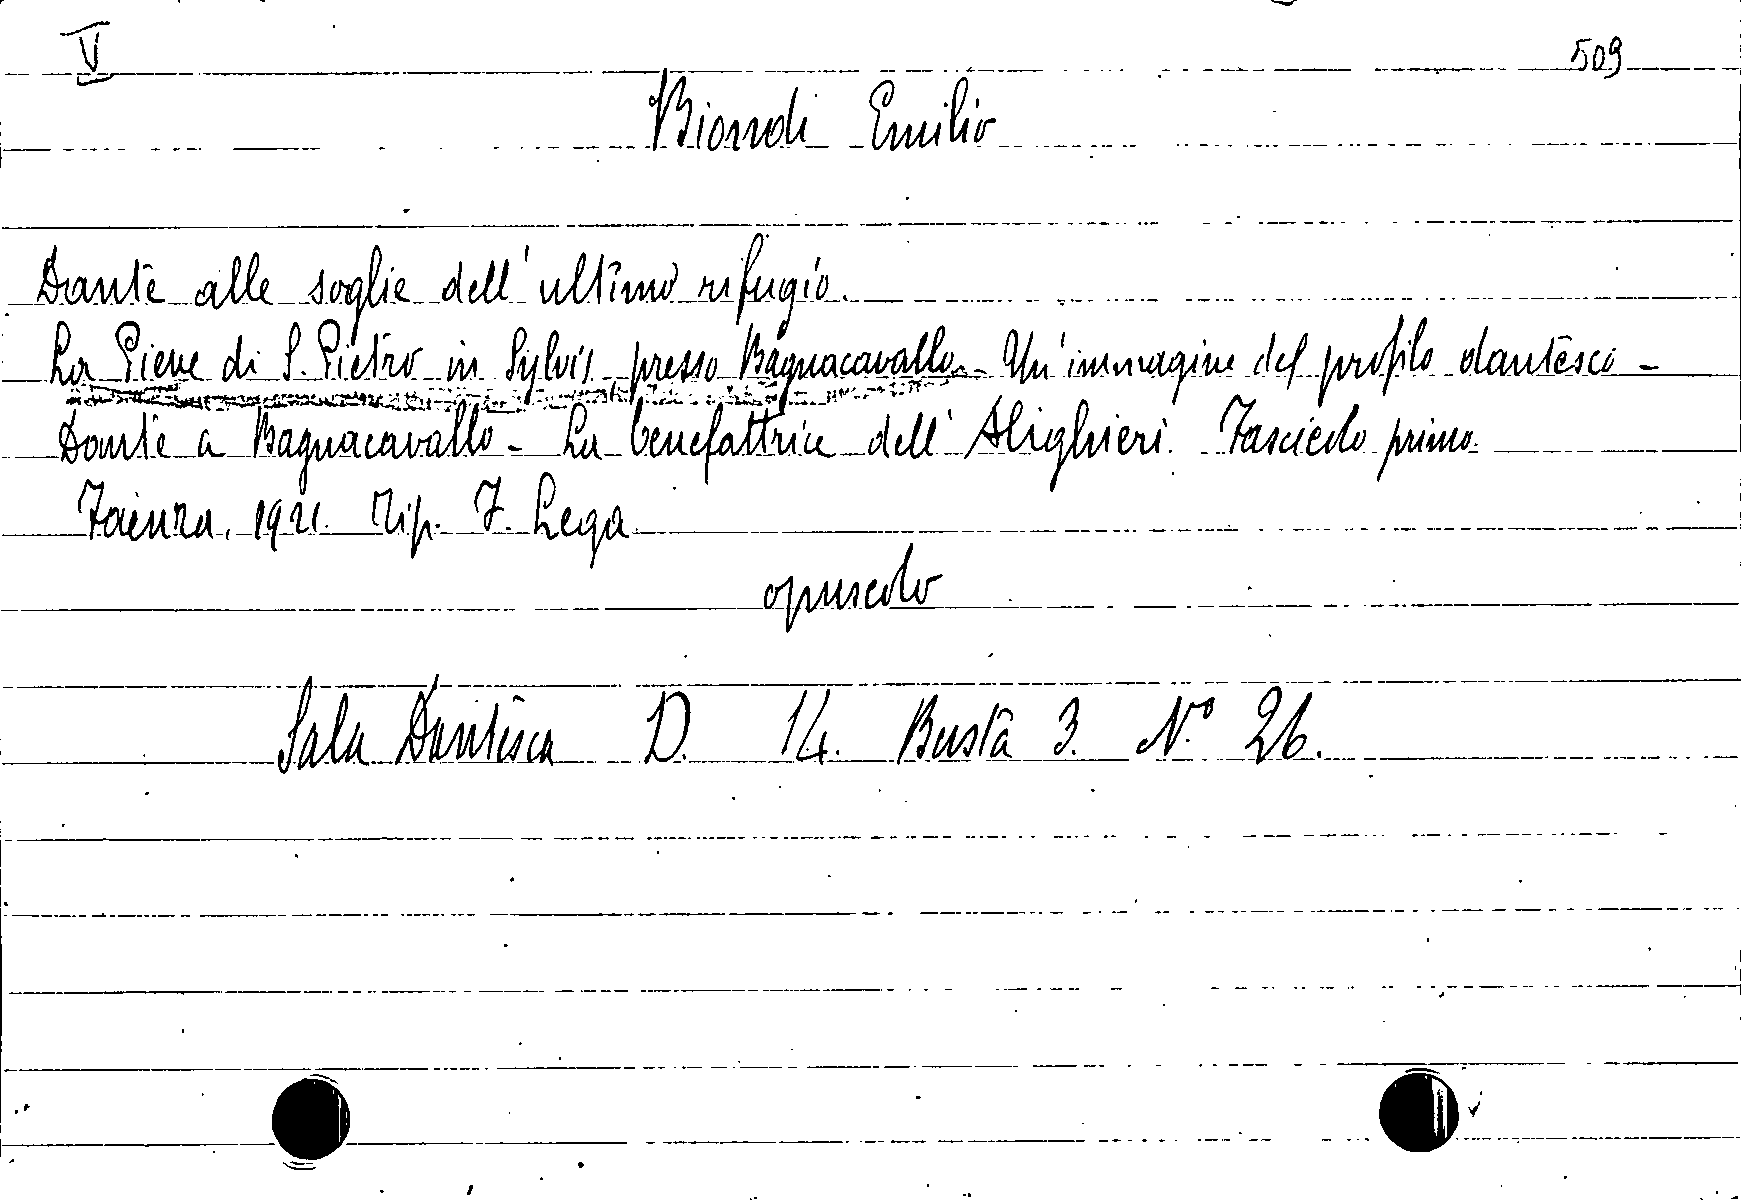 V 509
Biondi Emilio
Dante alle soglie dell'ultimo rifugio.
La Pieve di S. Pietro in Sylvis, presso Bagnacavallo - Un'immagine del profilo dantesco -
Dante a Bagnacavallo - La benefattrice dell'Alighieri. Fascicolo primo.
Faenza, 1921. Tip. F. Lega
opuscolo
Sala Dantesca D. 14. Busta 3. N° 26.